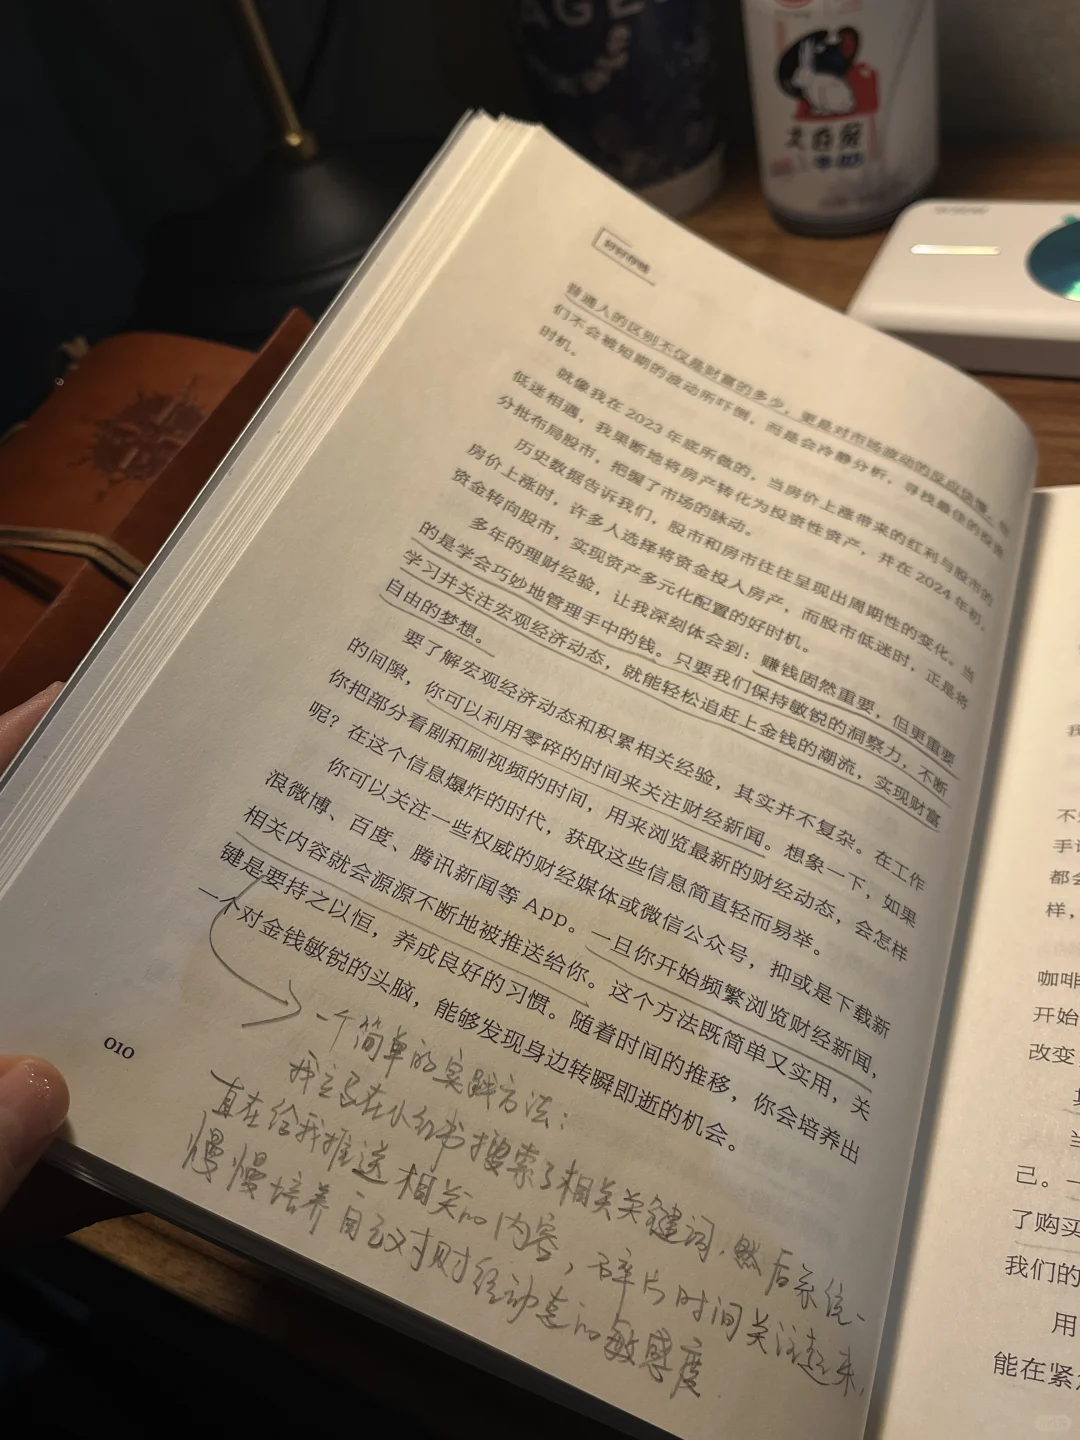 AGE
大白兔
好好存钱
普通人的区别不仅是财富的多少，更是对市场波动的反应
们不会被短期的波动所吓倒，而是会冷静分析，寻找最佳的投资
时机。
就像我在 2023 年底所做的，当房价上涨带来的红利与股市的
低迷相遇，我果断地将房产转化为投资性资产，并在 2024 年初，
分批布局股市，把握了市场的脉动。
历史数据告诉我们，股市和房市往往呈现出周期性的变化。当
房价上涨时，许多人选择将资金投入房产，而股市低迷时，正是将
资金转向股市，实现资产多元化配置的好时机。
多年的理财经验，让我深刻体会到：赚钱固然重要，但更重要
的是学会巧妙地管理手中的钱。只要我们保持敏锐的洞察力，不断
学习并关注宏观经济动态，就能轻松追赶上金钱的潮流，实现财富
自由的梦想。
要了解宏观经济动态和积累相关经验，其实并不复杂。在工作
的间隙，你可以利用零碎的时间来关注财经新闻。想象一下，如果
你把部分看剧和刷视频的时间，用来浏览最新的财经动态，会怎样
呢？在这个信息爆炸的时代，获取这些信息简直轻而易举。
你可以关注一些权威的财经媒体或微信公众号，抑或是下载新
浪微博、百度、腾讯新闻等 App。一旦你开始频繁浏览财经新闻，
相关内容就会源源不断地被推送给你。这个方法既简单又实用，关
键是要持之以恒，养成良好的习惯。随着时间的推移，你会培养出
一个对金钱敏锐的头脑，能够发现身边转瞬即逝的机会。
一个简单的实践方法：
我主动在小红书搜索了相关关键词，然后系统一
直在给我推送相关的内容，碎片时间关注起来，
慢慢培养自己对财经动态的敏感度
010
我
不
手
都会
样，
咖啡
开始
改变
当
己。一
了购买
我们的
用
能在紧